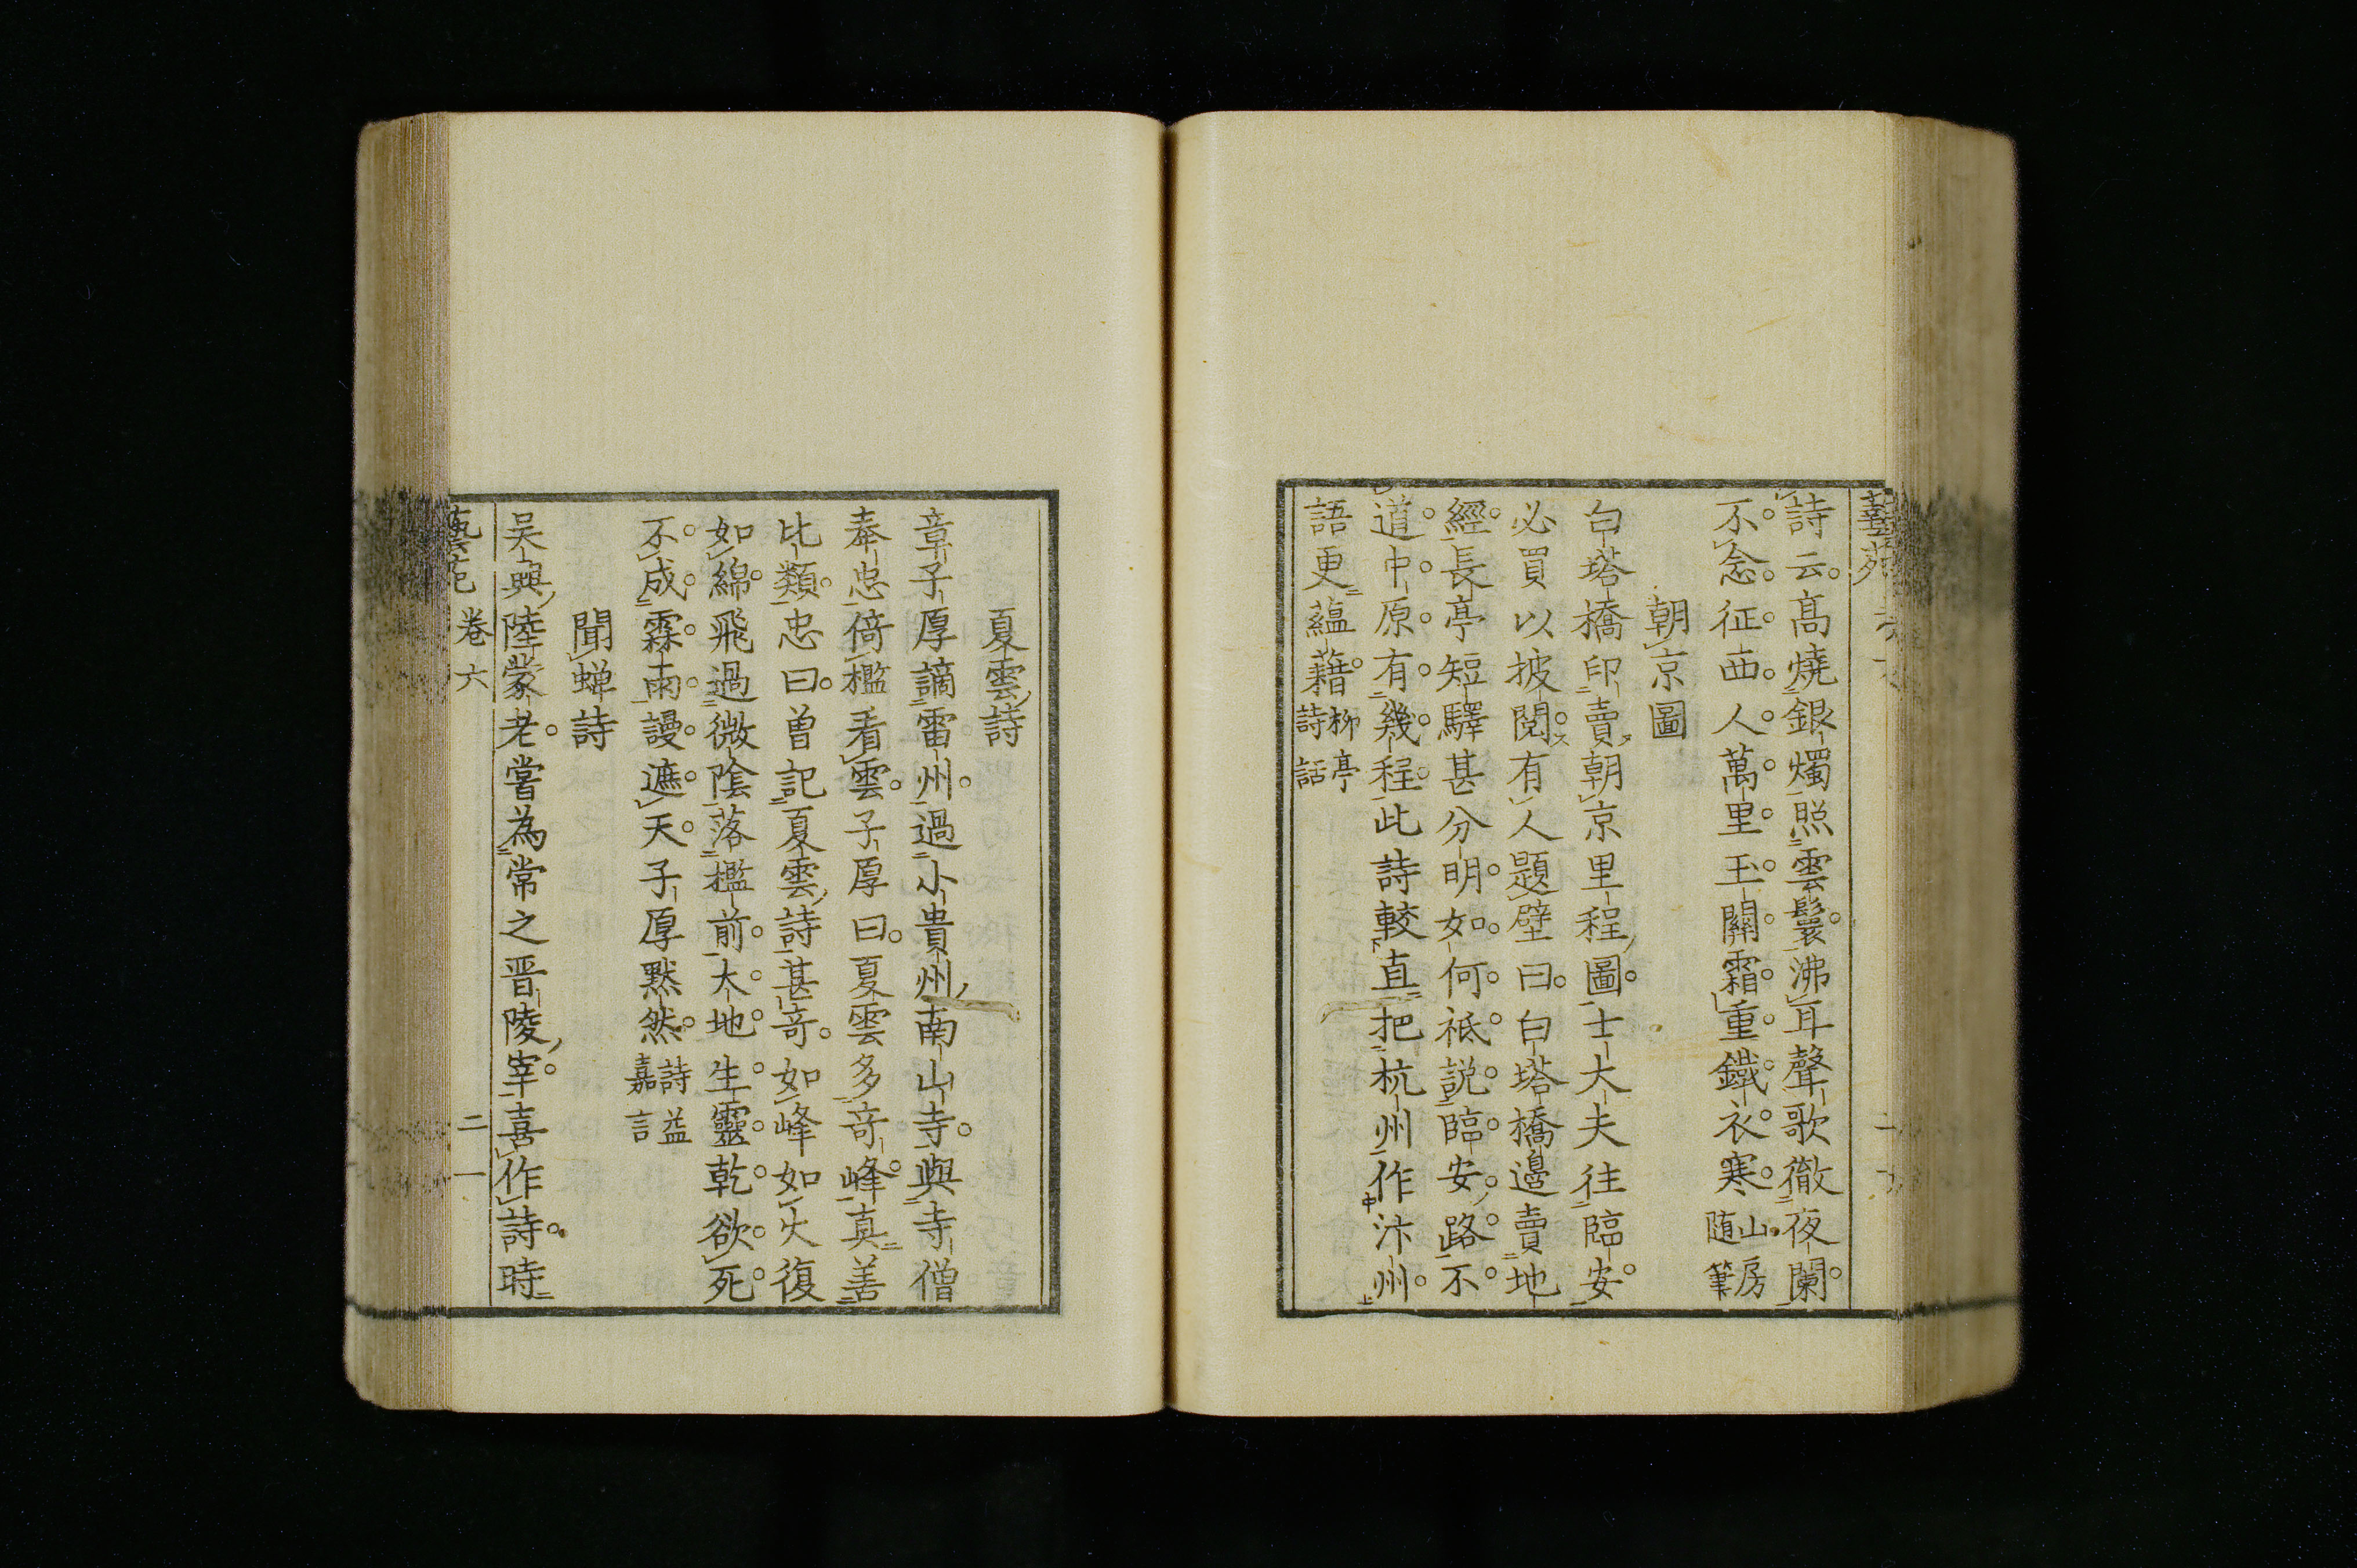 詩云高燒銀燭照雲鬟沸耳聲歌徹夜闌
不念征西人萬里玉關霜重鐵衣寒山房随筆
朝京圖
白塔橋印賣朝京里程圖士大夫往臨安
必買以披閱有人題壁曰白塔橋邊賣地
經長亭短驛甚分明如何祗説臨安路不
道中原有幾程此詩較直把杭州作汴州
語更蘊藉柳亭詩話
夏雲詩
章子厚謫雷州過小貴州南山寺與寺僧
奉忠倚檻看雲子厚曰夏雲多奇峰真善
比類忠曰曾記夏雲詩甚奇如峰如火復
如綿飛過微陰落檻前大地生靈乾欲死
不成霖雨謾遮天子厚黙然詩益嘉言
聞蝉詩
吴興陸蒙老嘗為常之晋陵宰喜作詩時
卷六 二一